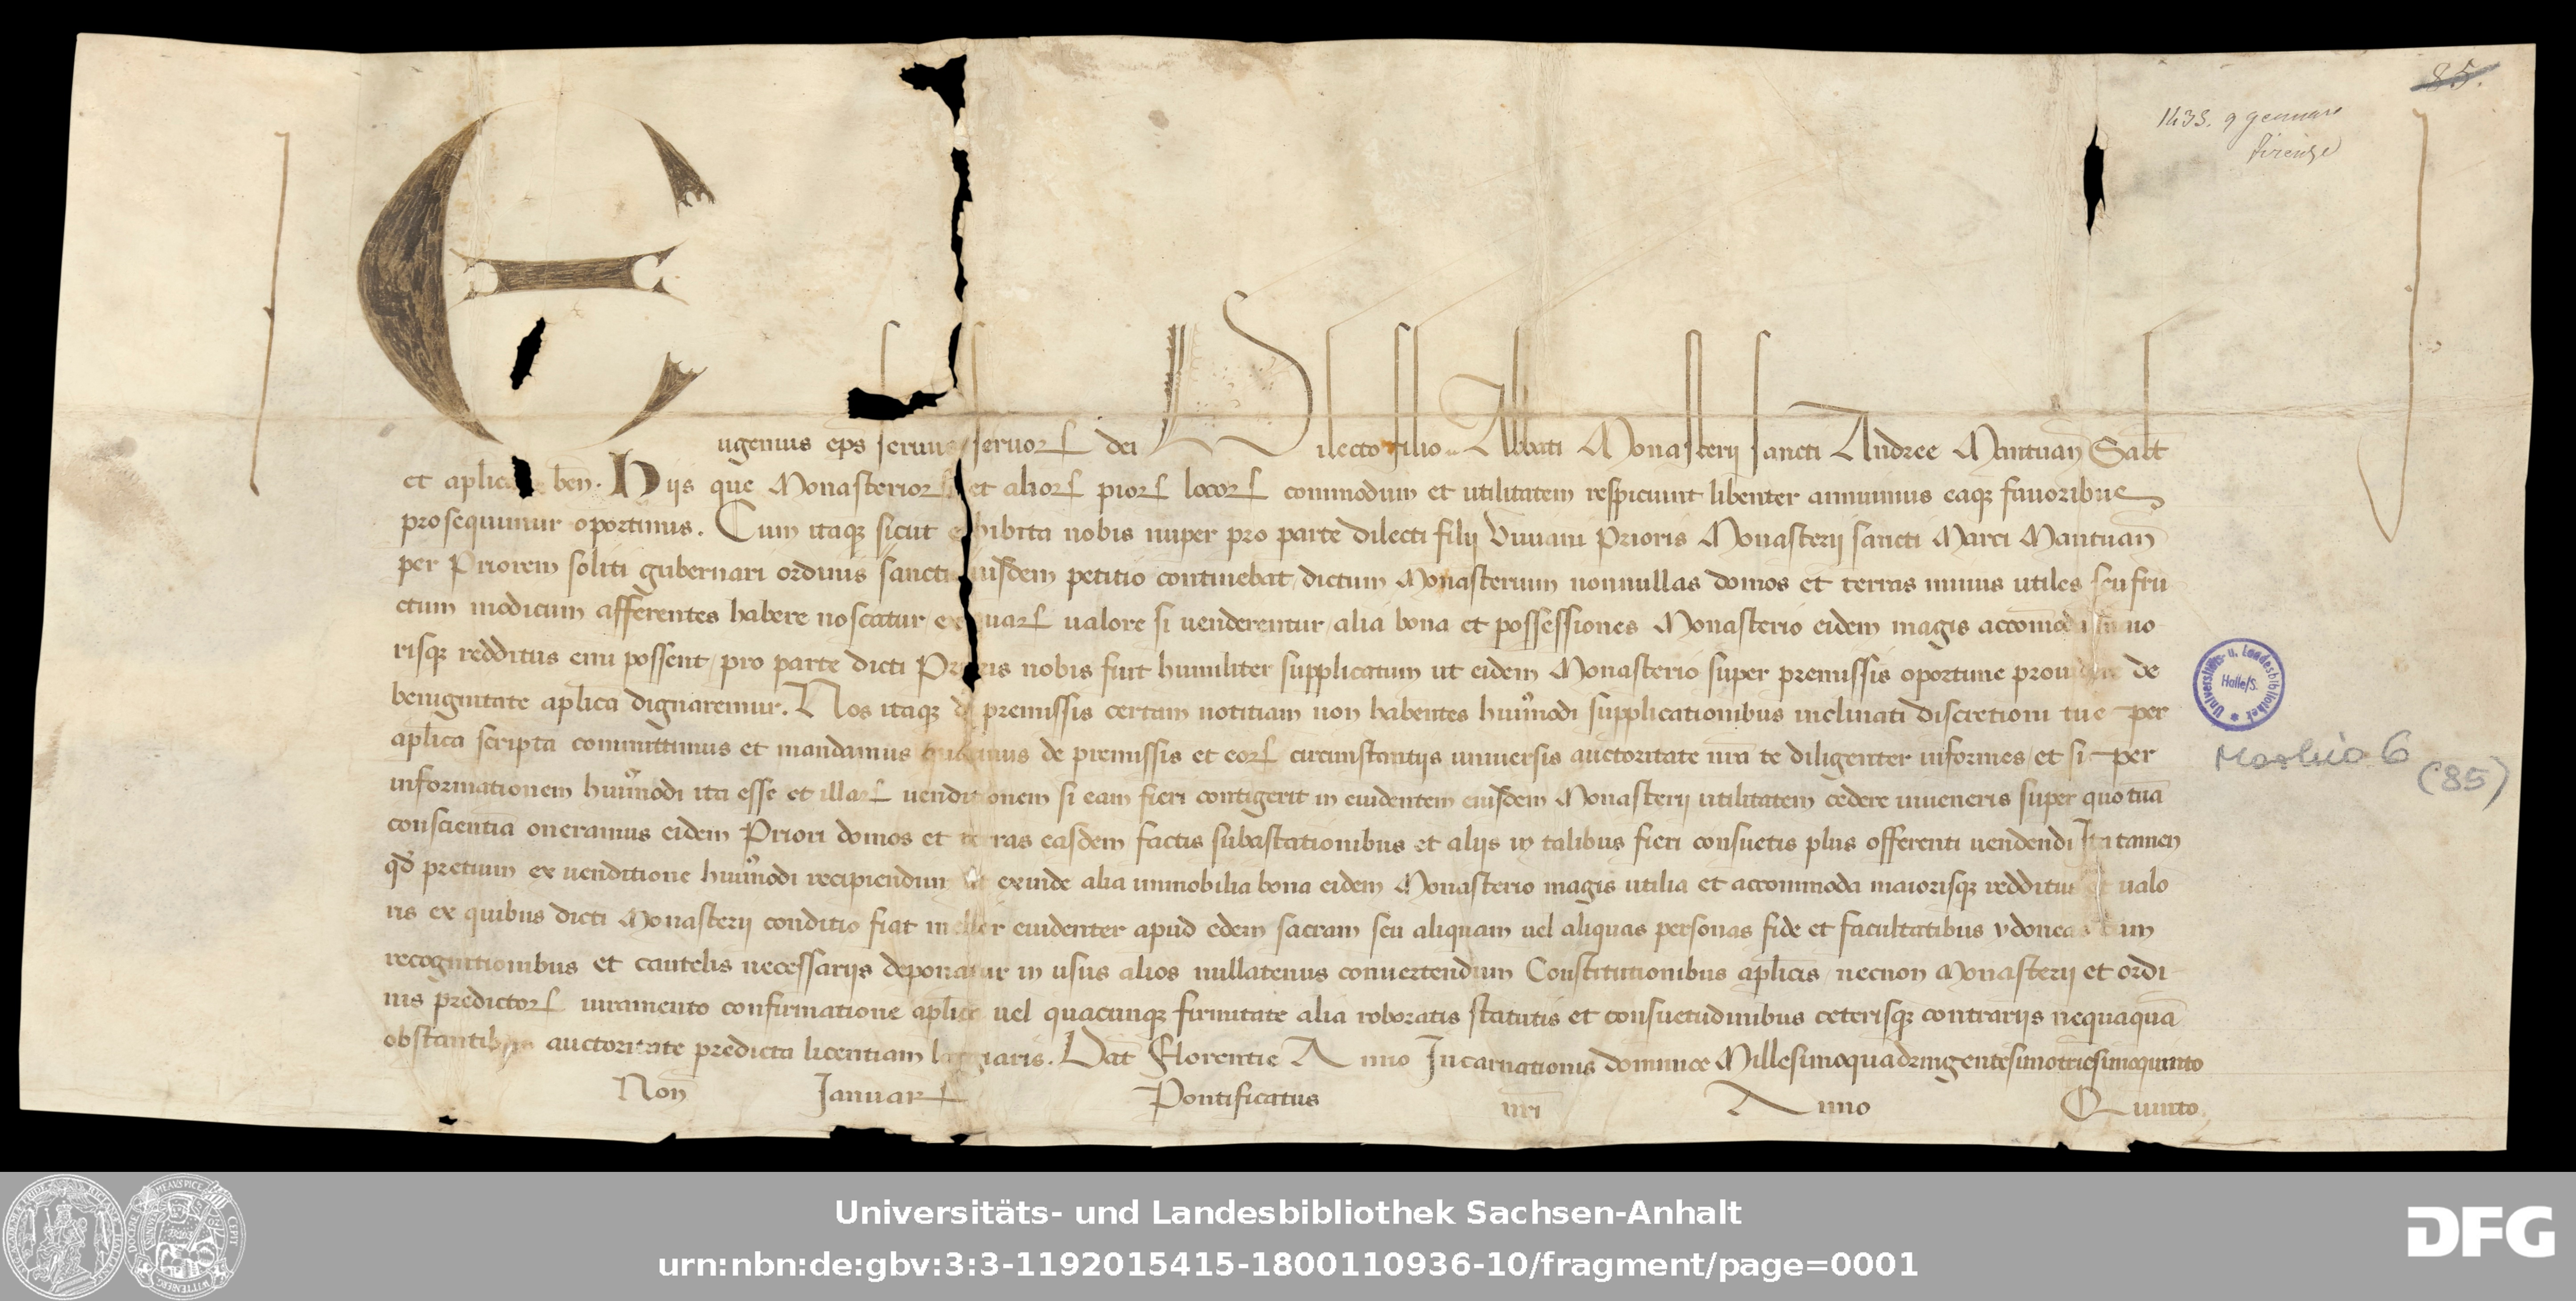 85.
1435. 9 gennaro
firenze
Eugenius eps seruus seruorꝝ dei Dilecto filio .. Abbati Monasterij sancti Andree Mantuan̄ Salt̄
et aplica ben̄. Hijs que Monasteriorꝝ et aliorꝝ piorꝝ locorꝝ commodum et utilitatem respiciunt libenter annuimus eaqꝫ fauoribus
prosequimur oportunis. Cum itaqꝫ sicut exhibita nobis nuper pro parte dilecti filij Viuiani Prioris Monasterij sancti Marci Mantuan̄
per Priorem soliti gubernari ordinis sancti eiusdem petitio continebat / dictum Monasterium nonnullas domos et terras minus utiles seu fru
ctum modicum afferentes habere noscatur / ex quarꝝ ualore si uenderentur / alia bona et possessiones Monasterio eidem magis accomoda
risqꝫ redditus emi possent / pro parte dicti Prioris nobis fuit humiliter supplicatum ut eidem Monasterio super premissis oportune prouidere de
benignitate aplica dignaremur. Nos itaqꝫ de premissis certam notitiam non habentes huiꝰmodi supplicationibus inclinati discretioni tue per
aplica scripta committimus et mandamus quatinus de premissis et eorꝝ circumstantijs uniuersis auctoritate nr̄a te diligenter informes / et si per
informationem huiꝰmodi ita esse et illarꝝ uenditionem si eam fieri contigerit in euidentem eiusdem Monasterij utilitatem cedere inueneris super quo tuā
conscientiā oneramus eidem Priori domos et terras easdem factis subastationibus et alijs in talibus fieri consuetis plus offerenti uendendi Ita tamen
qd̄ pretium ex uenditione huiꝰmodi recipiendum ut exinde alia immobilia bona eidem Monasterio magis utilia et accommoda maiorisqꝫ redditus et ualo
ris ex quibus dicti Monasterij conditio fiat melior euidenter apud edem sacram seu aliquam uel aliquas personas fide et facultatibus ydoneas cum
recognitionibus et cautelis necessarijs deponatur in usus alios nullatenus conuertendum Constitutionibus aplicis / necnon Monasterij et ordi
nis predictorꝝ iuramento confirmatione aplica uel quacunqꝫ firmitate alia roboratis statutis et consuetudinibus ceterisqꝫ contrarijs nequaquā
obstantibus auctoritate predicta licentiam largiaris. Dat̄ Florentie Anno Incarnationis dominice Millesimoquadringentesimotricesimoquinto
Non̄ Januarꝝ Pontificatus nr̄i Anno Quinto
Universitäts- u. Landesbibliothek
Halle/S.
6
(85)
Universitäts- und Landesbibliothek Sachsen-Anhalt
urn:nbn:de:gbv:3:3-1192015415-1800110936-10/fragment/page=0001
DFG